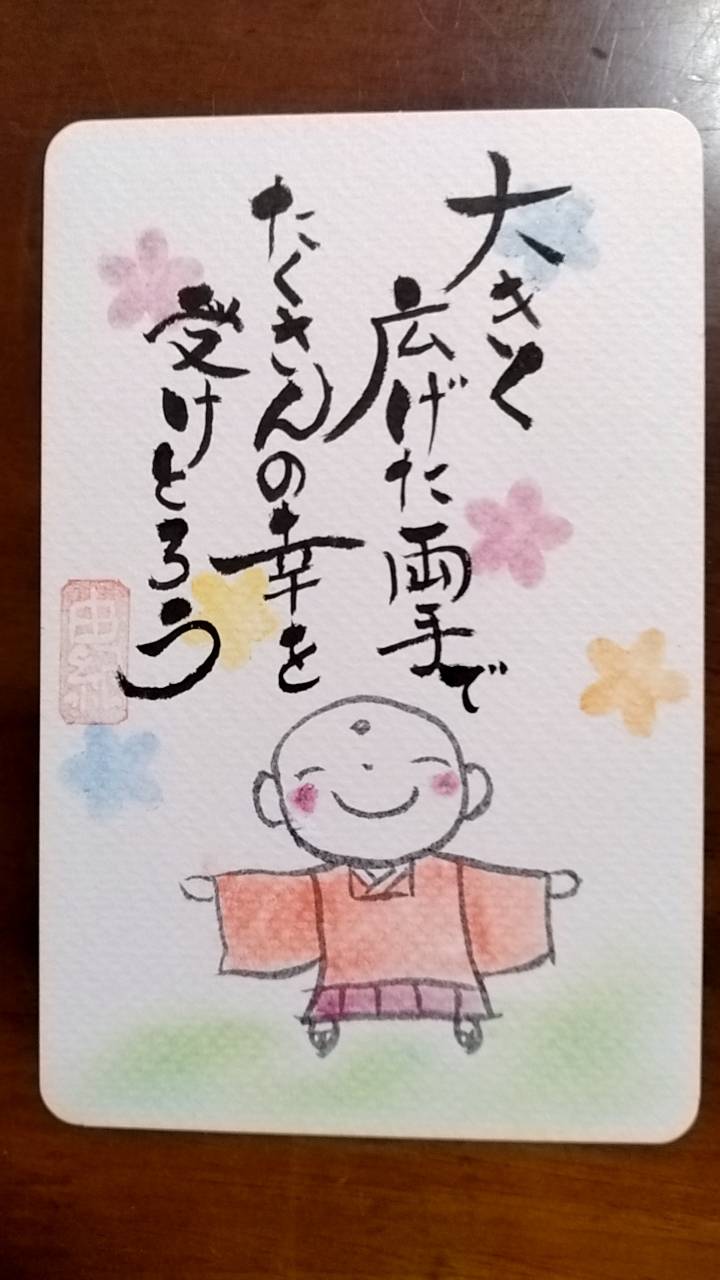 大きく
広げた両手で
たくさんの幸を
受けとろう